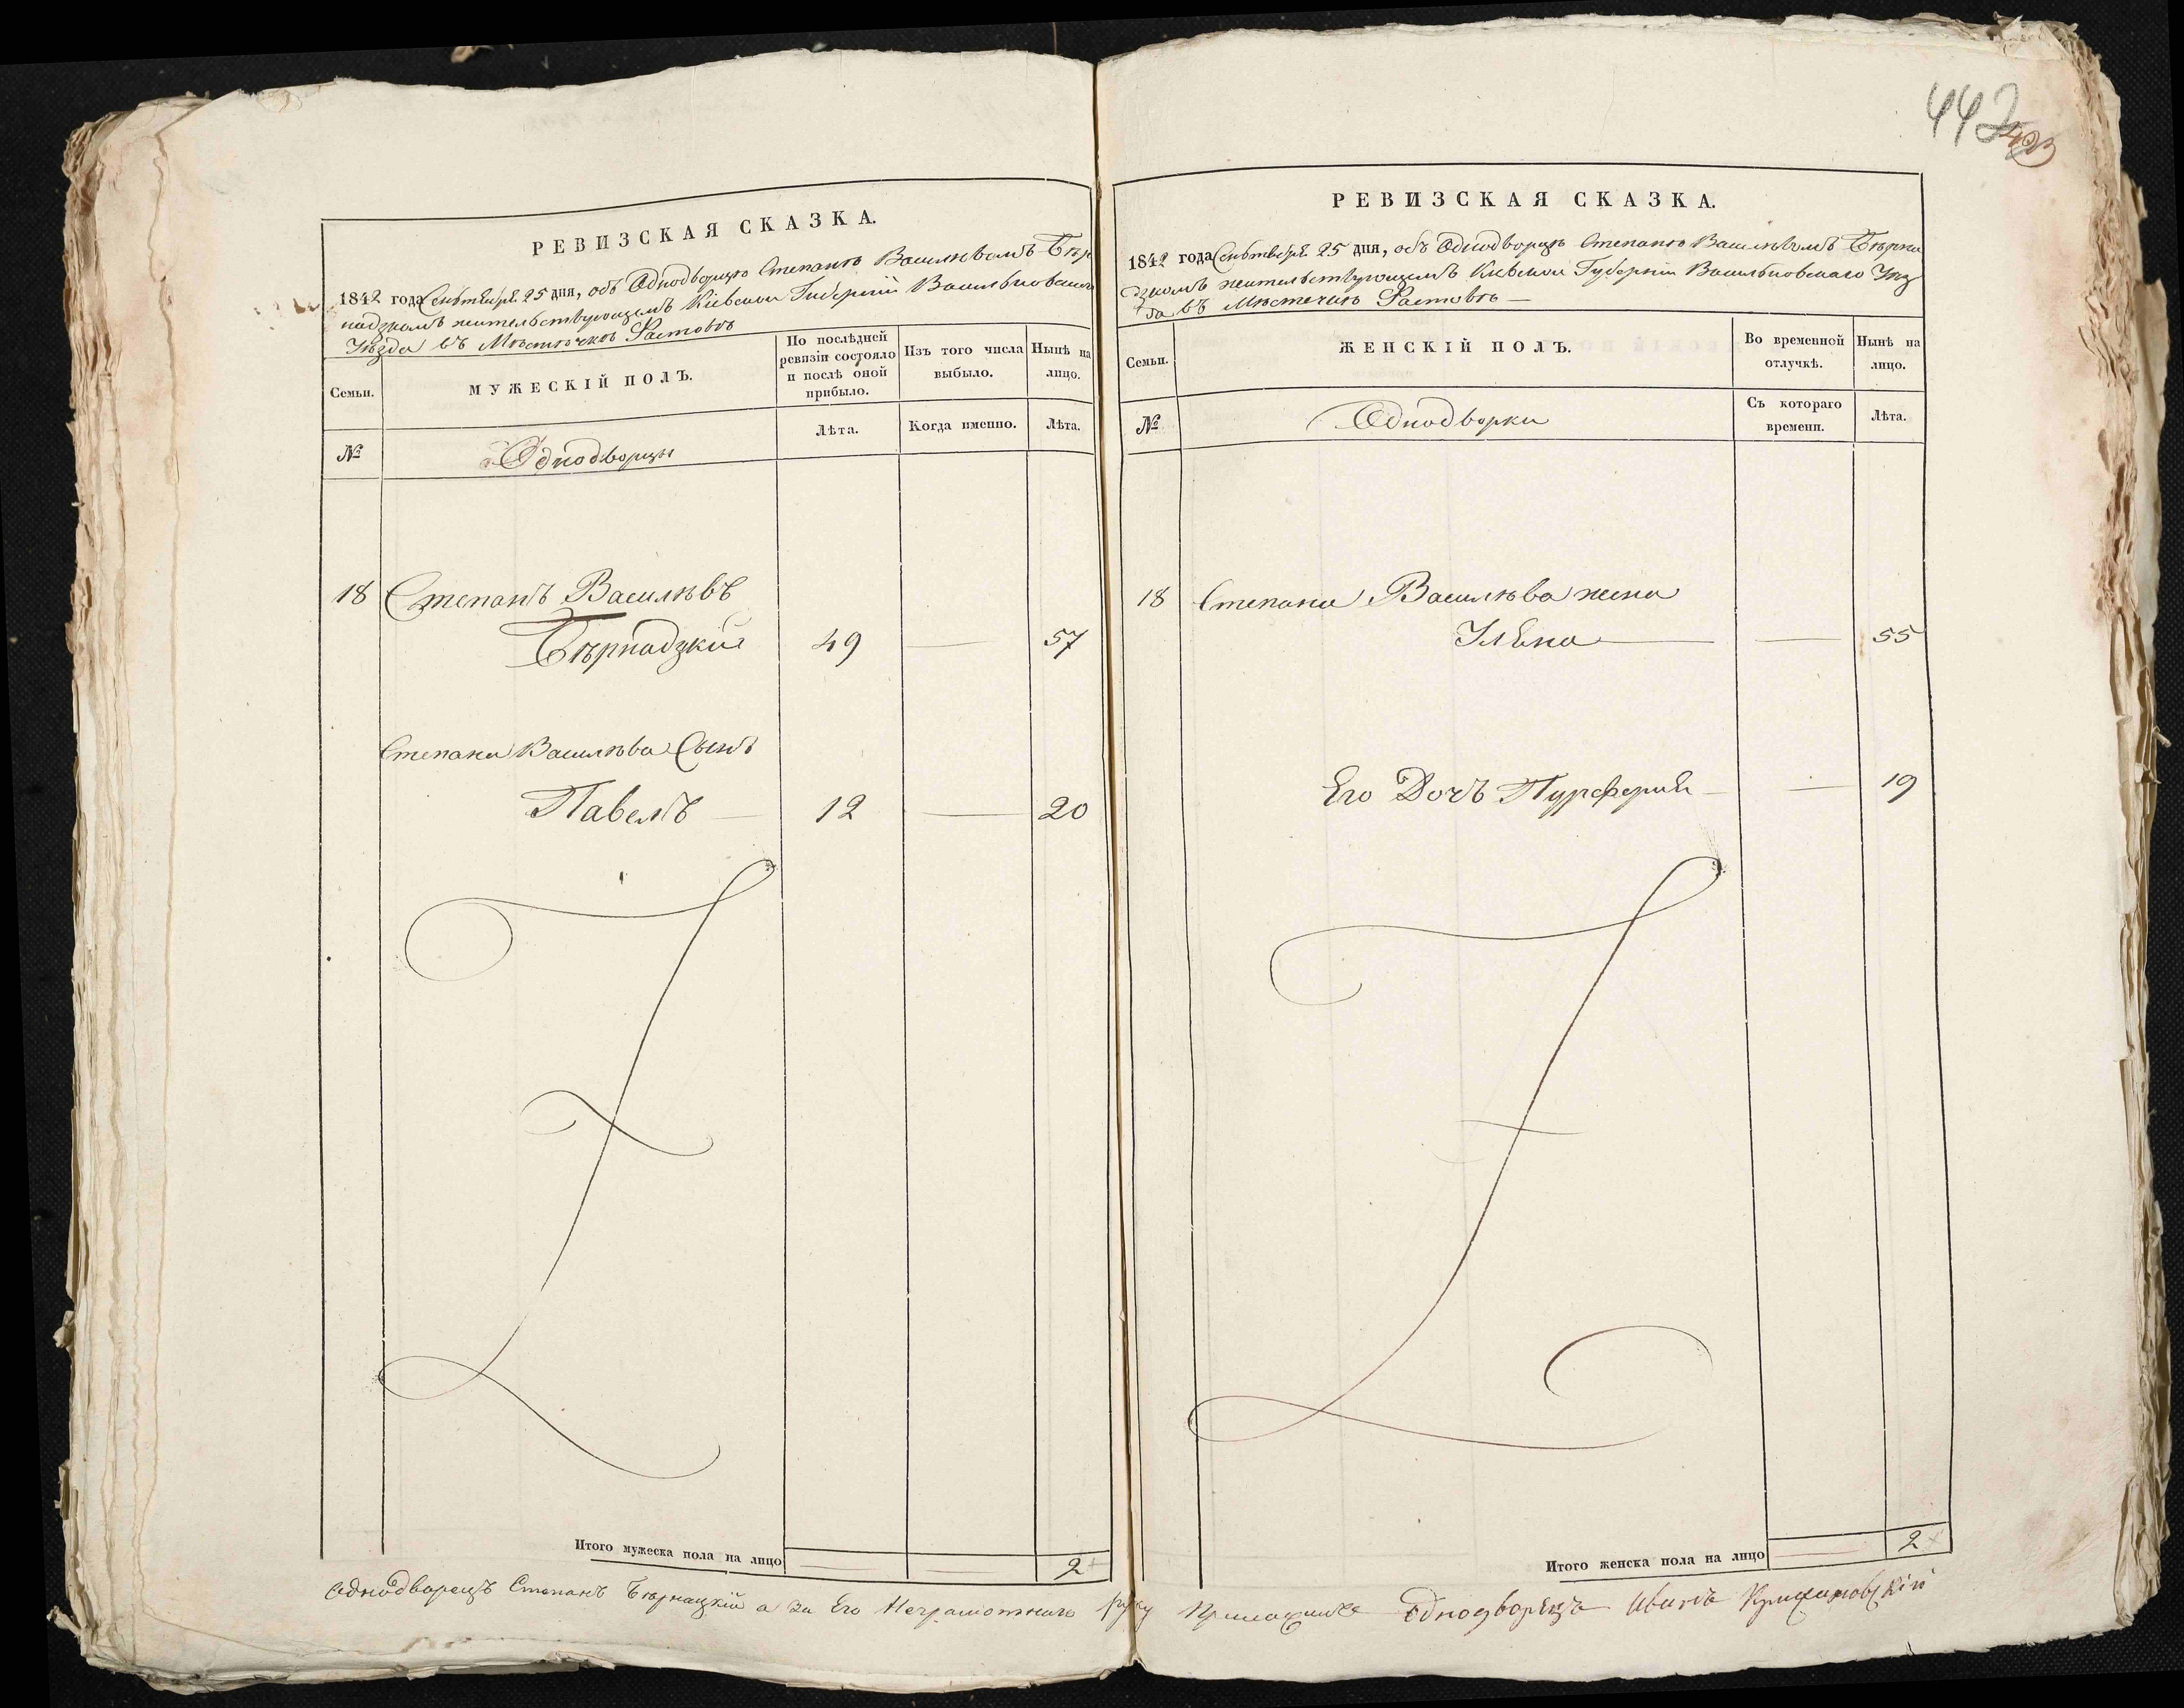 442
РЕВИЗСКАЯ СКАЗКА.
1842 года Сентебря 25 дня, объ Однодворцѣ Степанѣ Василѣвомъ Бѣр
надзкомъ жительствующемъ Кіевской Губерніи Васильковскаго
Уѣзда въ Мѣстѣчкѣ Фастовѣ
Семьи.
МУЖЕСКІЙ ПОЛЪ.
По послѣдней ревизіи состояло и послѣ оной прибыло.
Изъ того числа выбыло.
Нынѣ на лицо.
№
Однодворцы
Лѣта.
Когда именно.
Лѣта.
18 Степанъ Василѣвъ
Бѣрнадзкій 49 — 57
Степана Василѣва Сынъ
Павелъ — 12 — 20
Итого мужеска пола на лицо — — 2
Однодворецъ Степанъ Бѣрнацкій а за Его Неграмотнаго руку
РЕВИЗСКАЯ СКАЗКА.
1842 года Сентебря 25 дня, объ Однодворцѣ Степанѣ Василѣвомъ Бѣрна
дзкомъ жительствующемъ Кіевской Губерніи Васильковскаго Уѣз
да въ Мѣстечкѣ Фастовѣ —
Семьи.
ЖЕНСКІЙ ПОЛЪ.
Во временной отлучкѣ.
Нынѣ на лицо.
№
Однодворки
Съ котораго времени.
Лѣта.
18 Степана Василѣва жена
Улѣна — — 55
Его Дочъ — — 19
Итого женска пола на лицо — 2
Однодворецъ Иванъ